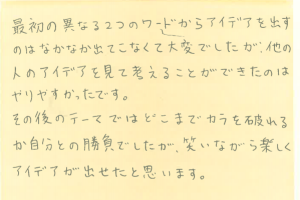 最初の異なる2つのワードからアイデアを出す
のはなかなか出てこなくて大変でしたが、他の
人のアイデアを見て考えることができたのは
やりやすかったです。
その後のテーマではどこまでカラを破れる
か自分との勝負でしたが、笑いながら楽しく
アイデアが出せたと思います。